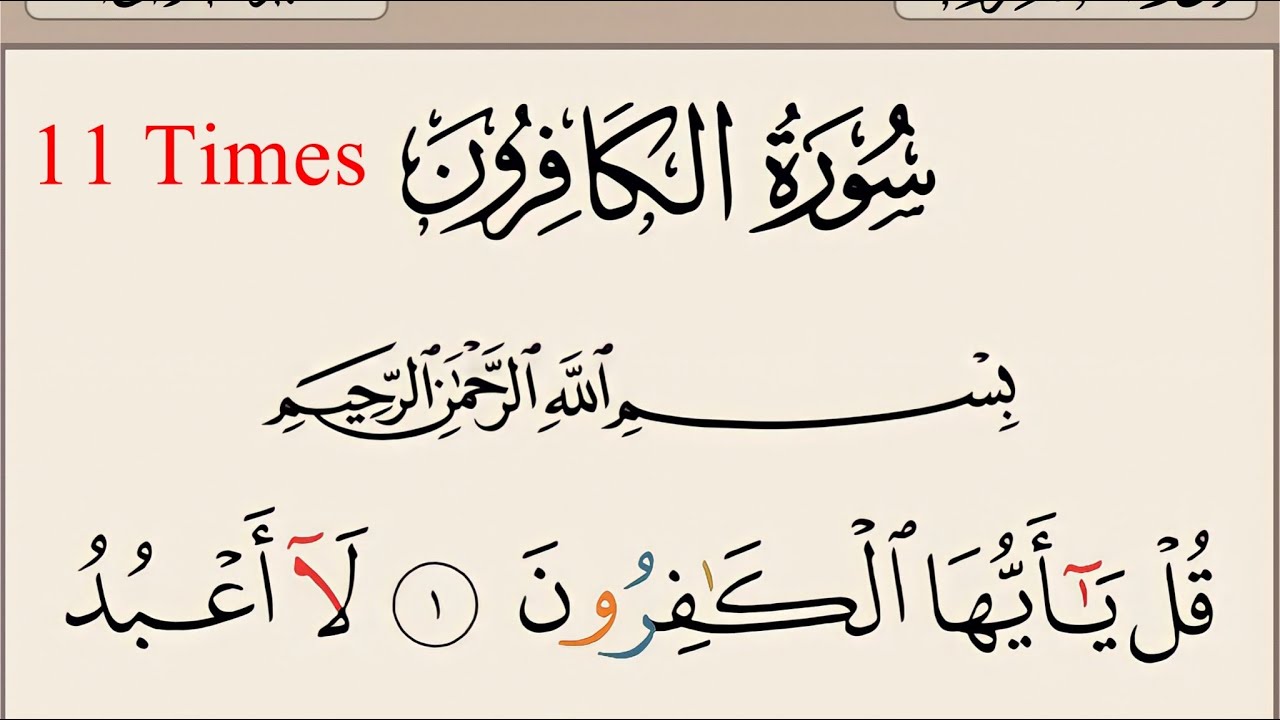 11 Times
سُورَةُ الكَافِرُونَ
بِسْمِ ٱللَّهِ ٱلرَّحْمَٰنِ ٱلرَّحِيمِ
قُلْ يَٰٓأَيُّهَا ٱلْكَٰفِرُونَ ١ لَآ أَعْبُدُ